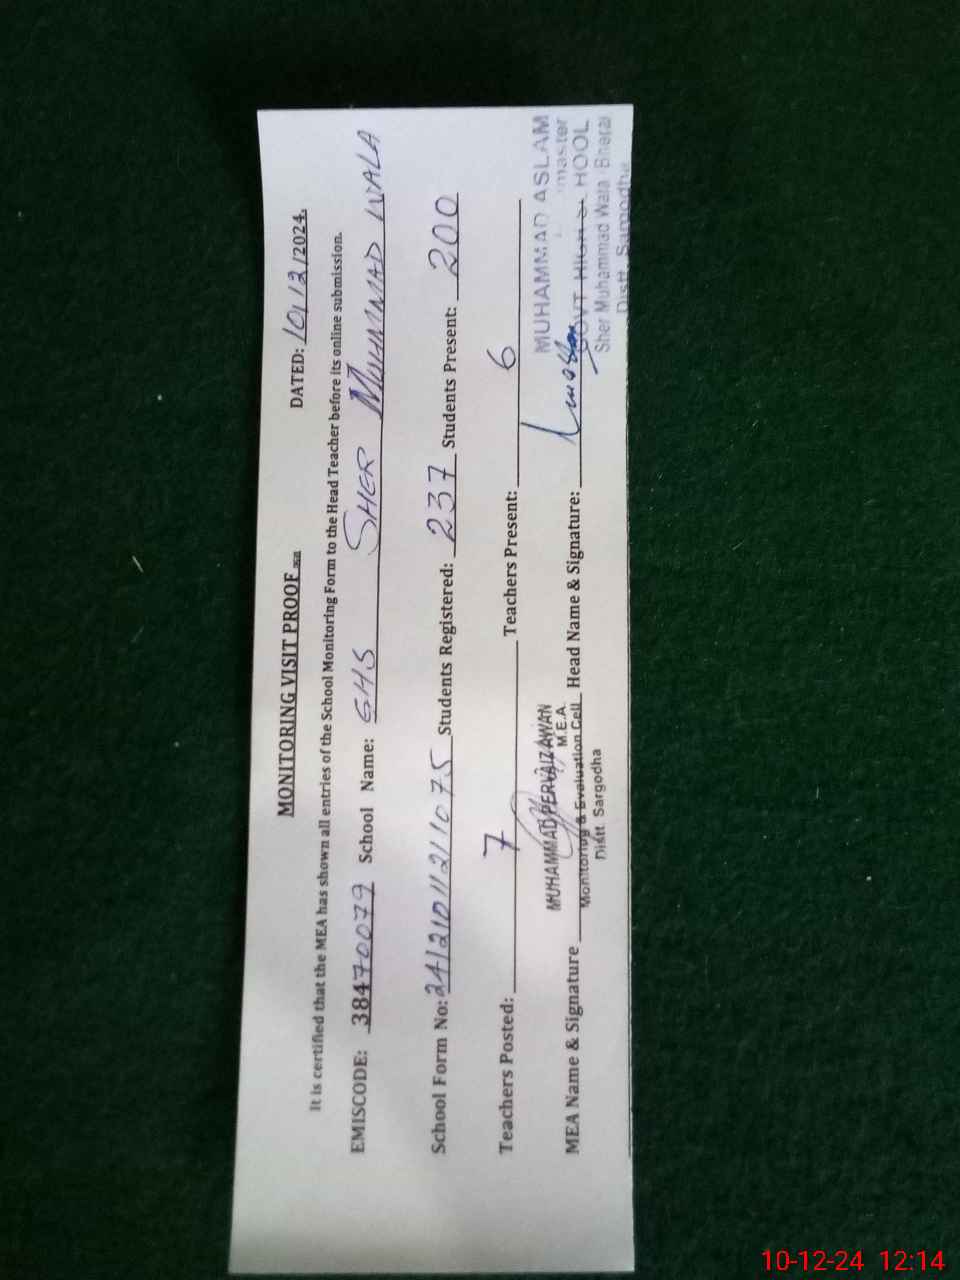 MONITORING VISIT PROOF
DATED: 10/12/2024.
It is certified that the MEA has shown all entries of the School Monitoring Form to the Head Teacher before its online submission.
EMISCODE: 38470079 School Name: GHS SHER MUHMMAD WALA
School Form No: 24121011211075 Students Registered: 237 Students Present: 200
Teachers Posted: 7 Teachers Present: 6
MEA Name & Signature Head Name & Signature:
MUHAMMAD PERVAIZ AWAN
M.E.A.
Monitoring & Evaluation Cell
Distt. Sargodha
MUHAMMAD ASLAM
master
GOVT HIGH HOOL
Sher Muhammad Wala
Distt.
10-12-24 12:14